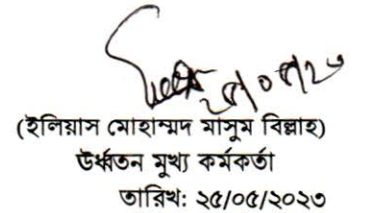 ২৫/০৫/২৩
(ইলিয়াস মোহাম্মদ মাসুম বিল্লাহ)
উর্ধ্বতন মুখ্য কর্মকর্তা
তারিখ: ২৫/০৫/২০২৩